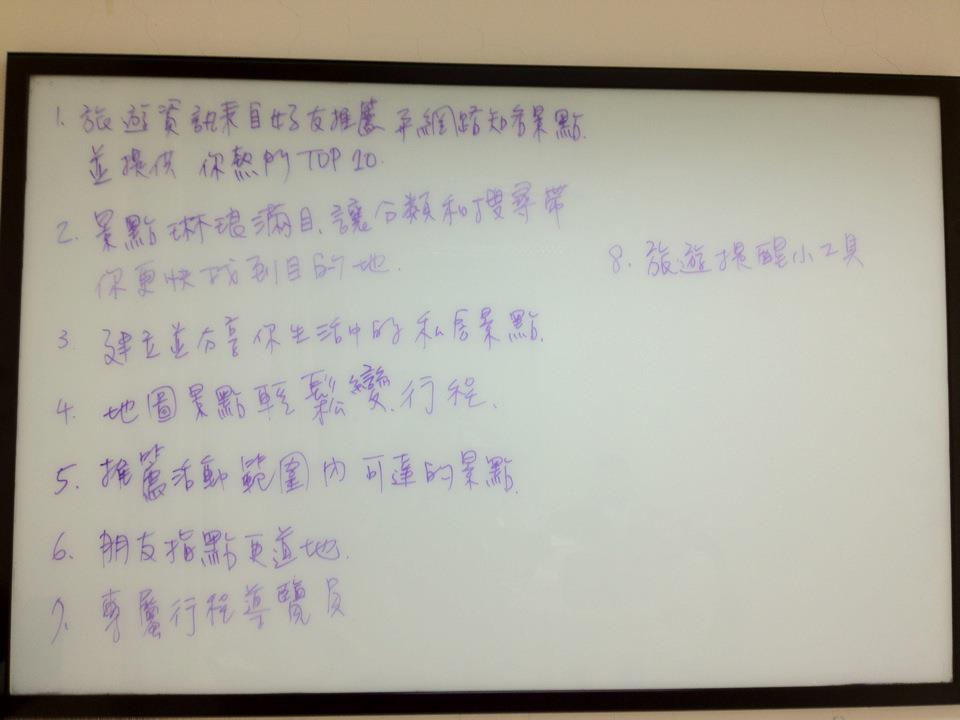 1. 旅遊資訊來自好友推薦 及網路知名景點.
並提供 你熱門 TOP 20.
2. 景點琳琅滿目、讓分類和搜尋帶
你更快找到目的地.
3. 建立並分享你生活中的私房景點.
4. 地圖景點輕鬆變行程.
5. 推薦活動範圍內可達的景點.
6. 朋友指點更道地.
7. 專屬行程導覽員
8. 旅遊提醒小工具